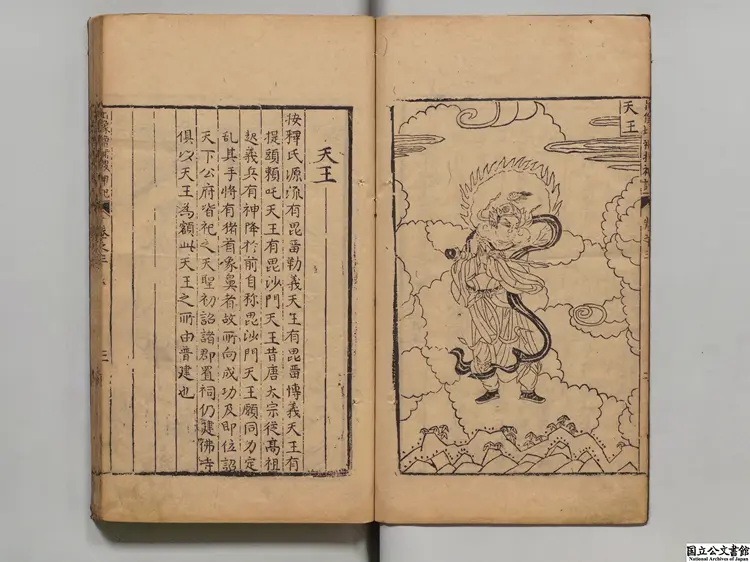 天王
天王
按釋氏源流有毘畱勒義天王有毘畱博義天王有
提頭賴吒天王有毘沙門天王昔唐太宗從髙祖
起義兵有神降於前自称毘沙門天王願同力定
乱其手將有猪首象鼻者故所向成功及即位詔
天下公府皆祀之天聖初詔諸郡置祠仍建佛寺
俱以天王為額此天王之所由普建也
三
国立公文書館
National Archives of Japan